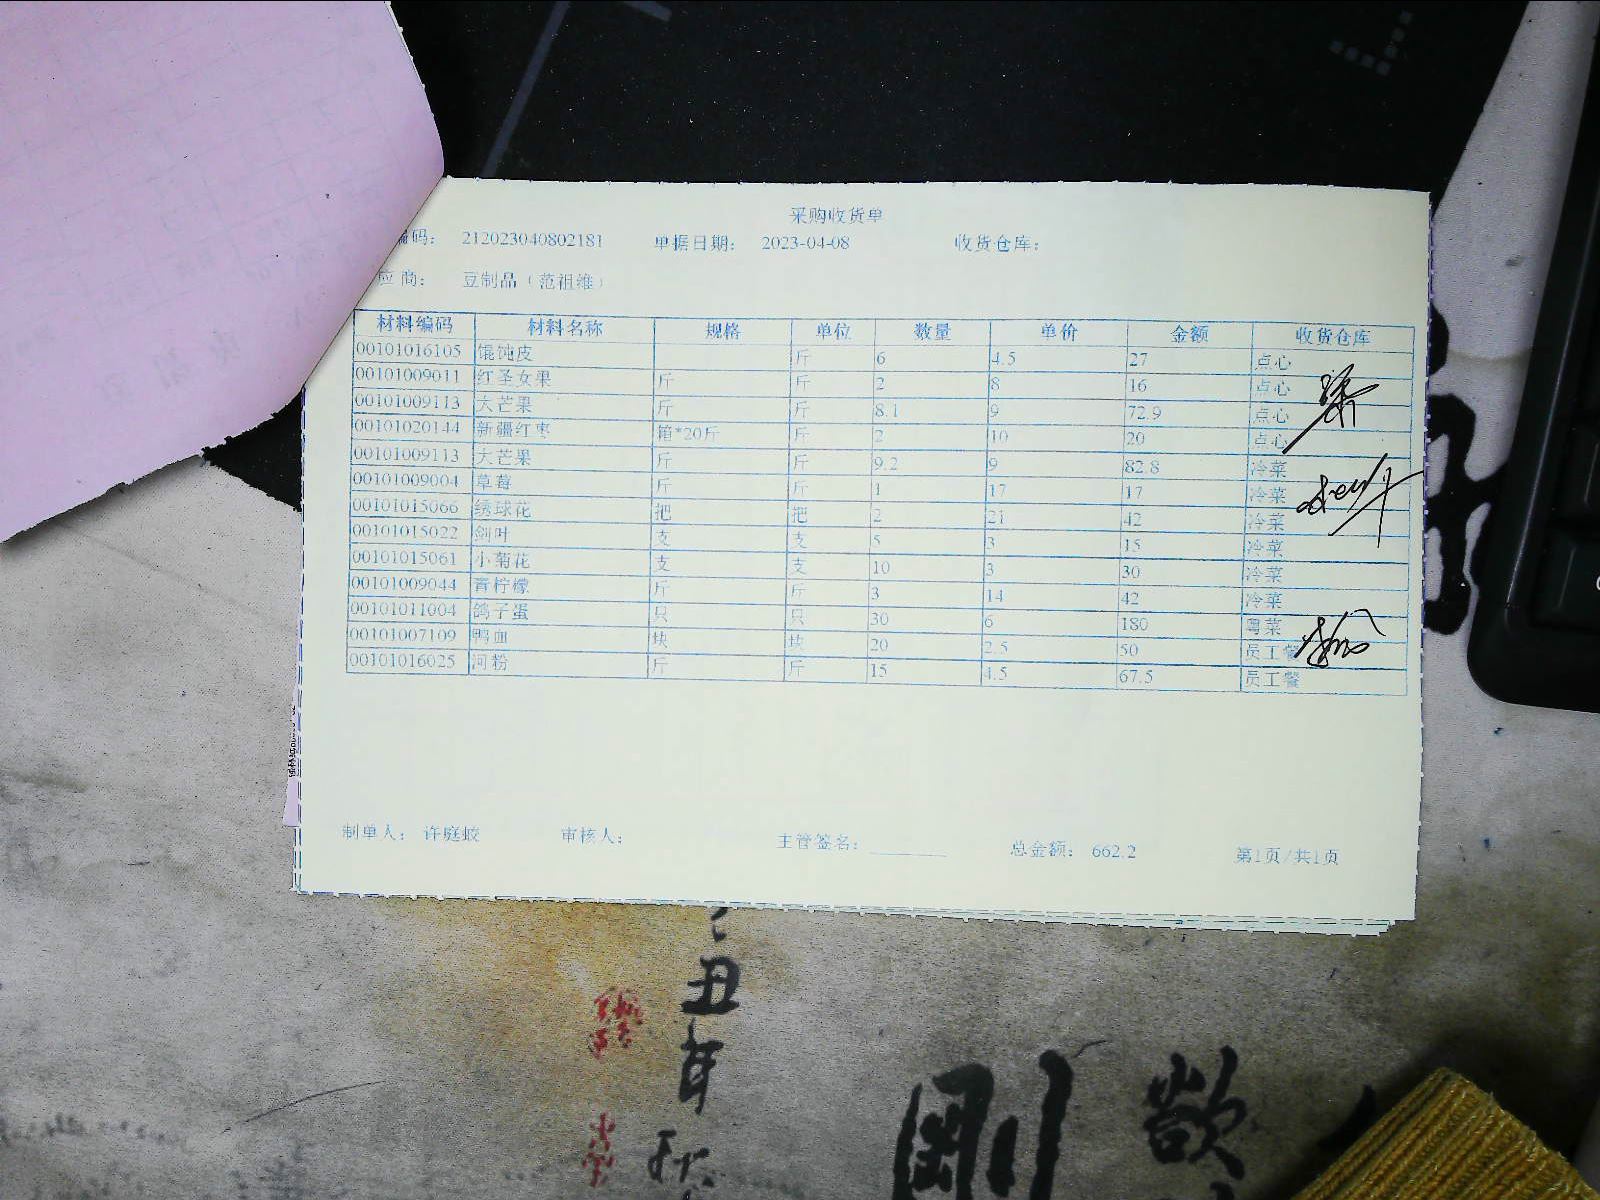 采购收货单
编码： 212023040802181 单据日期： 2023-04-08 收货仓库：
应商： 豆制品（范祖维）
材料编码 材料名称 规格 单位 数量 单价 金额 收货仓库
00101016105 馄饨皮 斤 6 4.5 27 点心
00101009011 红圣女果 斤 斤 2 8 16 点心
00101009113 大芒果 斤 斤 8.1 9 72.9 点心
00101020144 新疆红枣 箱*20斤 斤 2 10 20 点心
00101009113 大芒果 斤 斤 9.2 9 82.8 冷菜
00101009004 草莓 斤 斤 1 17 17 冷菜
00101015066 绣球花 把 把 2 21 42 冷菜
00101015022 剑叶 支 支 5 3 15 冷菜
00101015061 小菊花 支 支 10 3 30 冷菜
00101009044 青柠檬 斤 斤 3 14 42 冷菜
00101011004 鸽子蛋 只 只 30 6 180 粤菜
00101007109 鸭血 块 块 20 2.5 50 员工餐
00101016025 河粉 斤 斤 15 4.5 67.5 员工餐
制单人： 许庭蛟 审核人： 主管签名： 总金额： 662.2 第1页/共1页
丑
年
秋
剛
欲